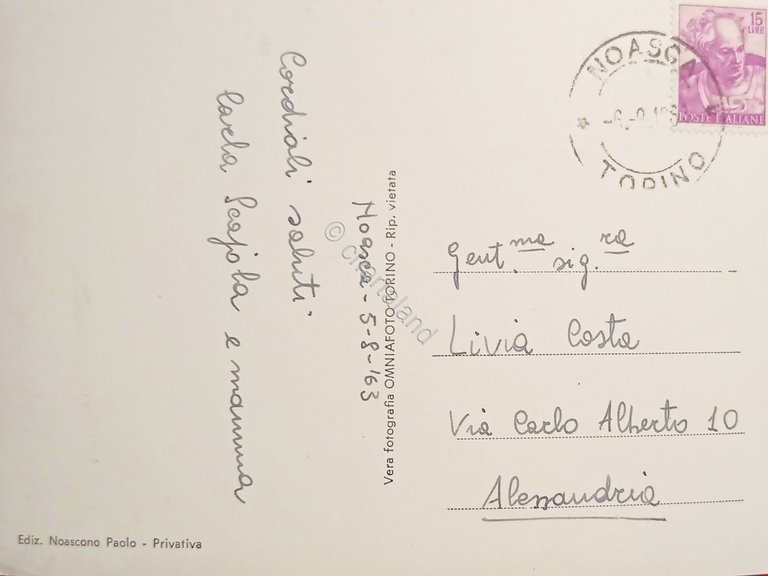 Noasca - 5-8-'63
Cordiali saluti
Carla Scajola e mamma
Vera fotografia OMNIAFOTO TORINO - Rip. vietata
© cartoland
15
LIRE
POSTE ITALIANE
NOASCA
TORINO
Gent.ma sig.ra
Livia Costa
Via Carlo Alberto 10
Alessandria
Ediz. Noascono Paolo - Privativa